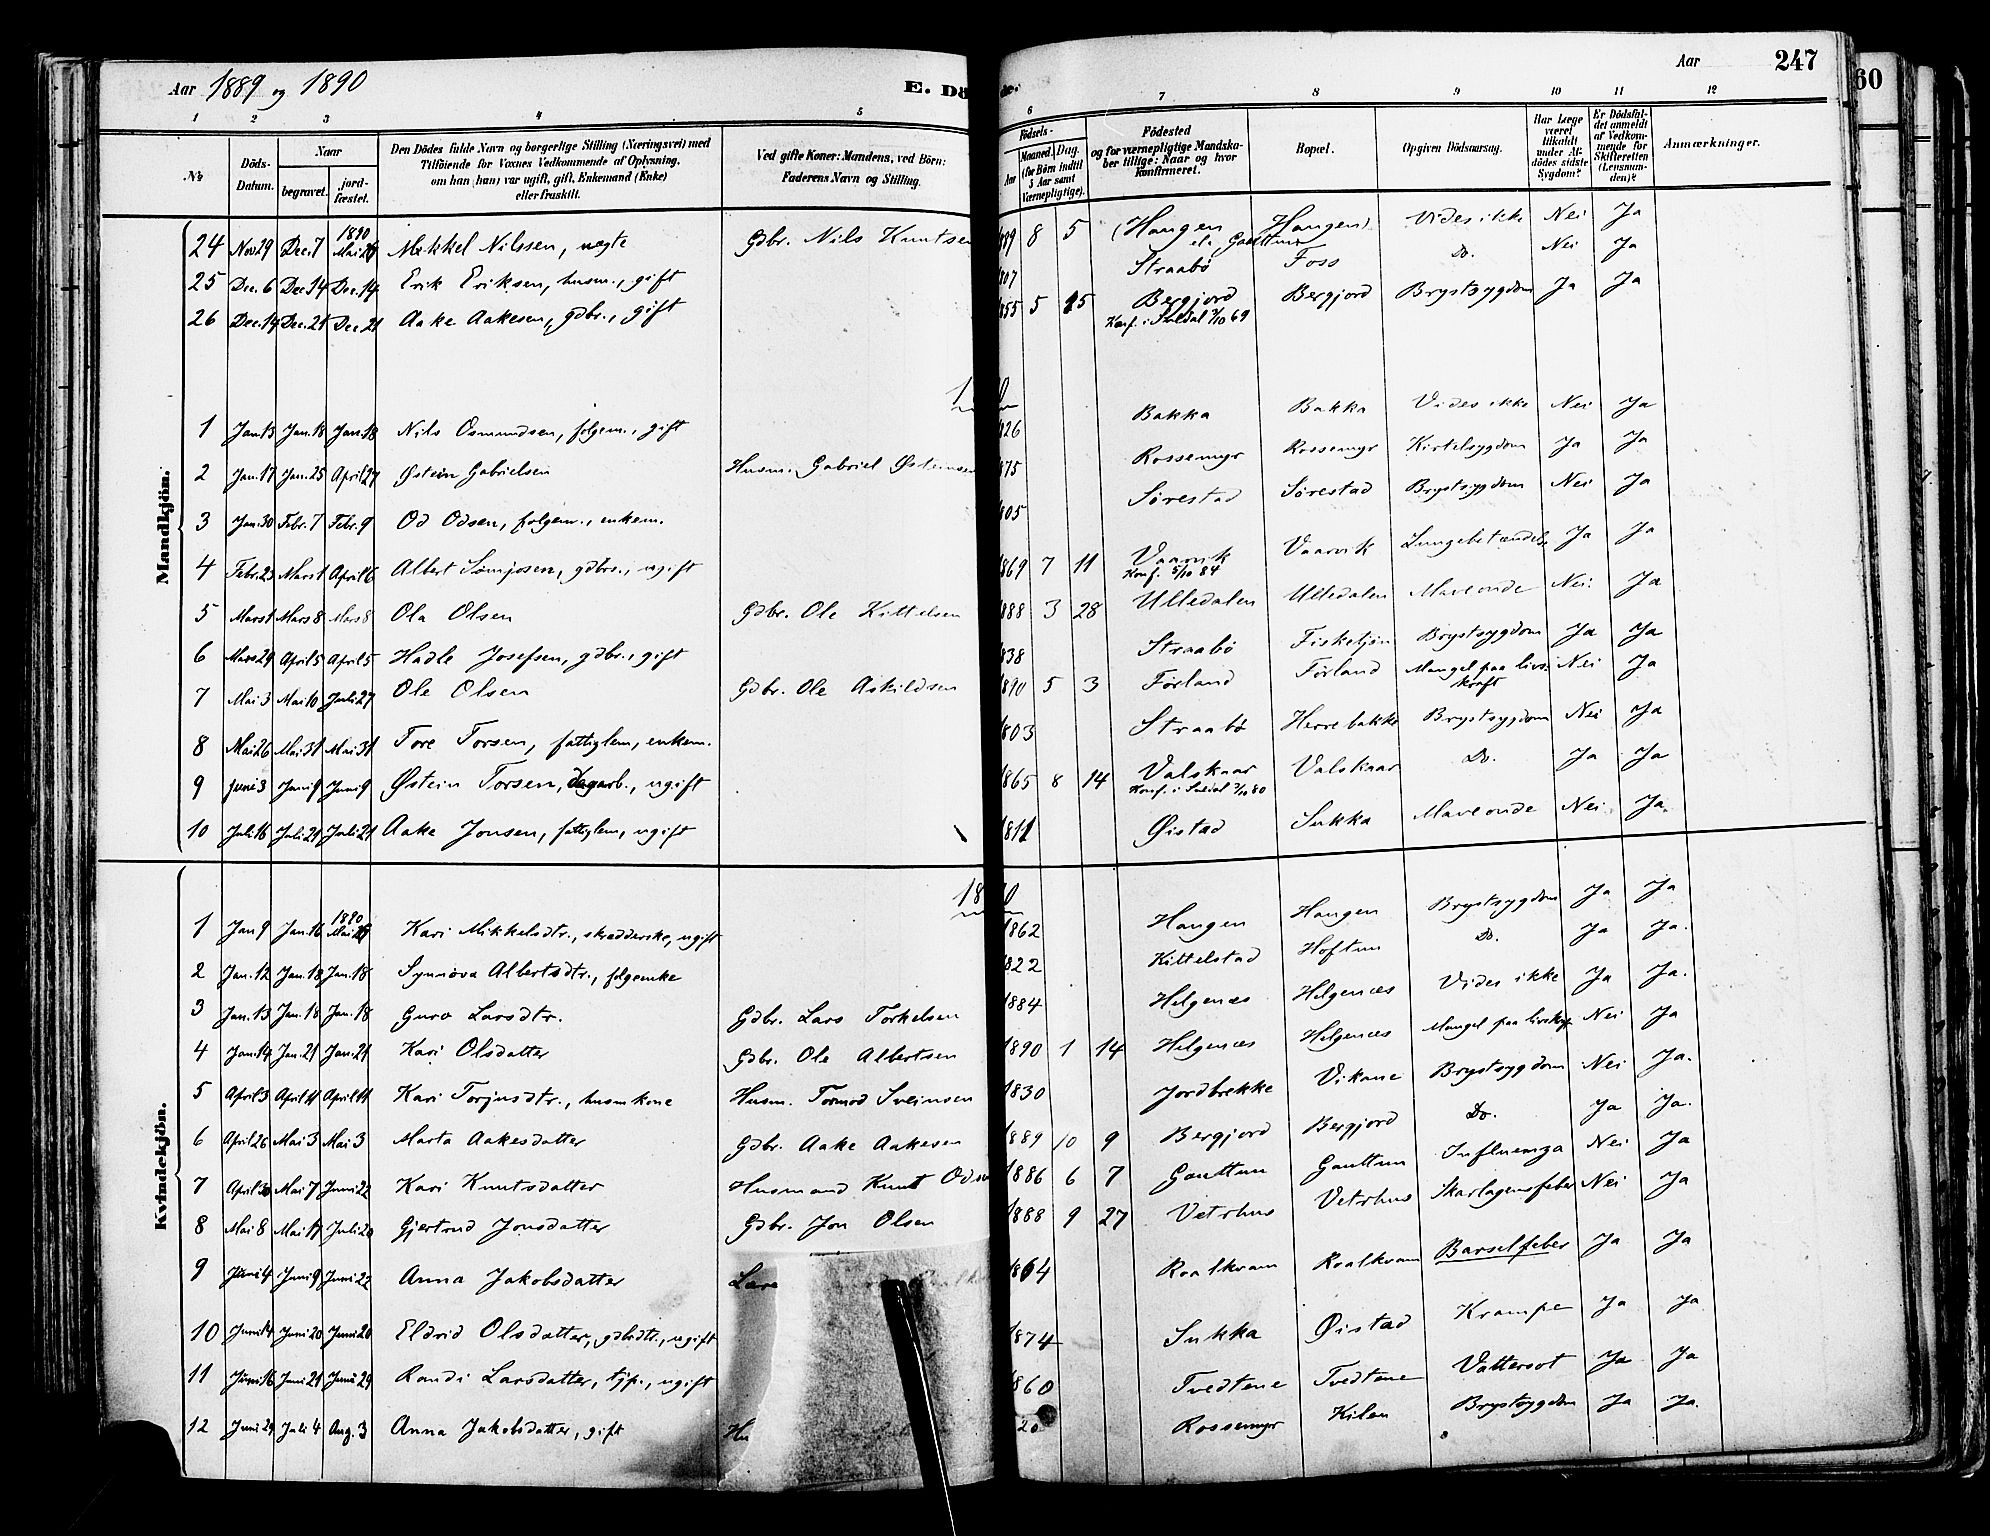 Aar 1889 og 1890 E. Dö Aar 247
60
1 2 3 4 5 6 7 8 9 10 11 12
№ Döds-Datum. Naar begravet. jord-fæstet. Den Dödes fulde Navn og borgerlige Stilling (Næringsvei) med Tilföiende for Voxnes Vedkommende af Oplysning, om han (hun) var ugift, gift, Enkemand (Enke) eller fraskilt. Ved gifte Koner: Mandens, ved Börn: Faderens Navn og Stilling. Födsels- Aar Maaned. Dag. (for Börn indtil 3 Aar samt Værnepligtige). Födested og for værnepligtige Mandskaber tillige: Naar og hvor Konfirmeret. Bopæl. Opgiven Dödsaarsag. Har Læge været tilkaldt under Afdödes sidste Sygdom? Er Dödsfaldet anmeldt af Vedkommende for Skifteretten (Lensmanden)? Anmærkninger.
Mandkjön.
24 Nov 29 Dec. 7 1890 Mai 29 Mikkel Nilssen, uægte Gdbr. Nils Knutsen 889 8 5 (Haugen Haugen) Vides ikke Nei Ja
25 Dec. 6 Dec. 14 Dec. 14 Erik Eriksen, husm., gift 807 Straabø Foss Do. Nei Ja
26 Dec. 14 Dec. 21 Dec 21 Aake Aakesen, gdbr., gift 855 5 15 Bergjord Bergjord Brystsygdom Ja Ja
Konf. i Suldal 3/10 69
1 Jan. 13 Jan. 18 Jan. 18 Nils Osmundsen, folgem., gift 826 Bakka Bakka Vides ikke Nei Ja
2 Jan. 17 Jan. 25 April 27 Østein Gabrielsen Husm. Gabriel Østeinsen 875 Rossemyr Rossemyr Kirtelsygdom Ja Ja
3 Jan. 30 Febr. 7 Febr. 9 Od Odsen, folgem., enkem. 805 Sørestad Sørestad Brystsygdom Nei Ja
4 Febr. 23 Mars 1 April 6 Albert Sømjosen, gdbrs., ugift 1869 7 11 Vaarvik Vaarvik Lungebetændelse Ja Ja
Konf. 5/10 84
5 Mars 1 Mars 8 Mars 8 Ola Olsen Gdbr. Ole Kittelsen 1888 3 28 Ulledalen Ulledalen Maveonde Nei Ja
6 Mars 29 April 5 April 5 Hadle Josefsen, gdbr., gift 838 Straabø Fisketjøn Brystsygdom Ja Ja
7 Mai 3 Mai 10 Juli 27 Ole Olsen Gdbr. Ole Askildsen 1890 5 3 Førland Førland Mangel paa livskraft Nei Ja
8 Mai 26 Mai 31 Mai 31 Tore Torsen, fattiglem, enkem. 1803 Straabø Herrebakke Brystsygdom Nei Ja
9 Juni 3 Juni 9 Juni 9 Østein Torsen, dagarb., ugift 1865 8 14 Valskaar Valskaar Do. Ja Ja
Konf. i Suldal 3/10 80
10 Juli 16 Juli 21 Juli 21 Aake Jonsen, fattiglem, ugift 1811 Øistad Sukka Maveonde Nei Ja.
Kvindekjön.
1 Jan 9 Jan. 16 1890 Mai 29 Kari Mikkelsdtr., skrædderske, ugift 1862 Haugen Haugen Brystsygdom Ja Ja
2 Jan. 12 Jan. 18 Jan. 18 Synnøva Albertsdtr., folgemke 1822 Kittelstad Hoftun Do. Ja Ja.
3 Jan. 13 Jan. 18 Jan. 18 Guro Larsdtr. Gdbr. Lars Torkelsen 1884 Helgenæs Helgenæs Vides ikke Ja Ja.
4 Jan. 14 Jan. 21 Jan. 21 Kari Olsdatter Gdbr. Ole Albertsen 1890 1 14 Helgenæs Helgenæs Mangel paa livskr. Nei Ja
5 April 3 April 11 April 11 Kari Torjusdtr., husmkone Husm. Tormod Sveinsen 1830 Jordbrekke Vikane Brystsygdom Nei Ja.
6 April 26 Mai 3 Mai 3 Marta Aakesdatter Gdbr. Aake Aakesen 1889 10 9 Bergjord Bergjord Do. Ja Ja.
7 April 30 Mai 7 Juni 22 Kari Knutsdatter Husmand Knut Odsen 1886 6 7 Gauttun Gauttun Influenza Nei Ja
8 Mai 8 Mai 17 Juli 20 Gjertrud Jonsdatter Gdbr. Jon Olsen 1888 9 27 Vetrhus Vetrhus Skarlagensfeber Nei Ja
9 Juni 4 Juni 9 Juni 22 Anna Jakobsdatter Lære 1864 Roalkvam Roalkvam Barselfeber Ja Ja
10 Juni 14 Juni 20 Juni 20 Eldrid Olsdatter, gdbrdtr., ugift 1874 Sukka Øistad Krampe Ja Ja
11 Juni 16 Juni 21 Juni 29 Randi Larsdatter, tjp., ugift 1860 Tvedtene Tvedtene Vattersot Ja Ja
12 Juni 29 Juli 4 Aug. 3 Anna Jakobsdatter, gift Hu 20 Rossemyr Kilen Brystsygdom Ja Ja.